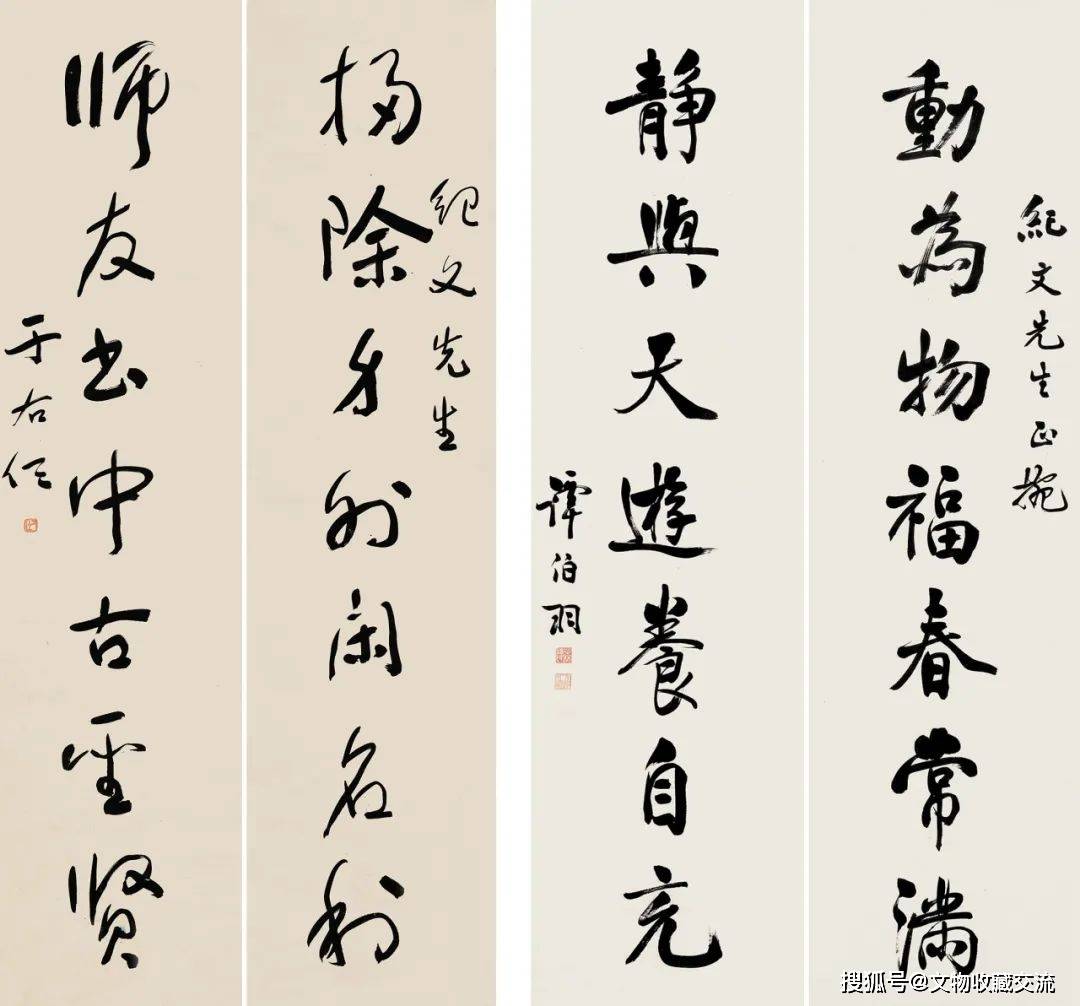 紀文先生正捥
動為物福春常滿
靜與天遊養自充
譚伯羽
紀文先生
掃除身外閑名利
師友書中古聖賢
于右任
搜狐号@文物收藏交流